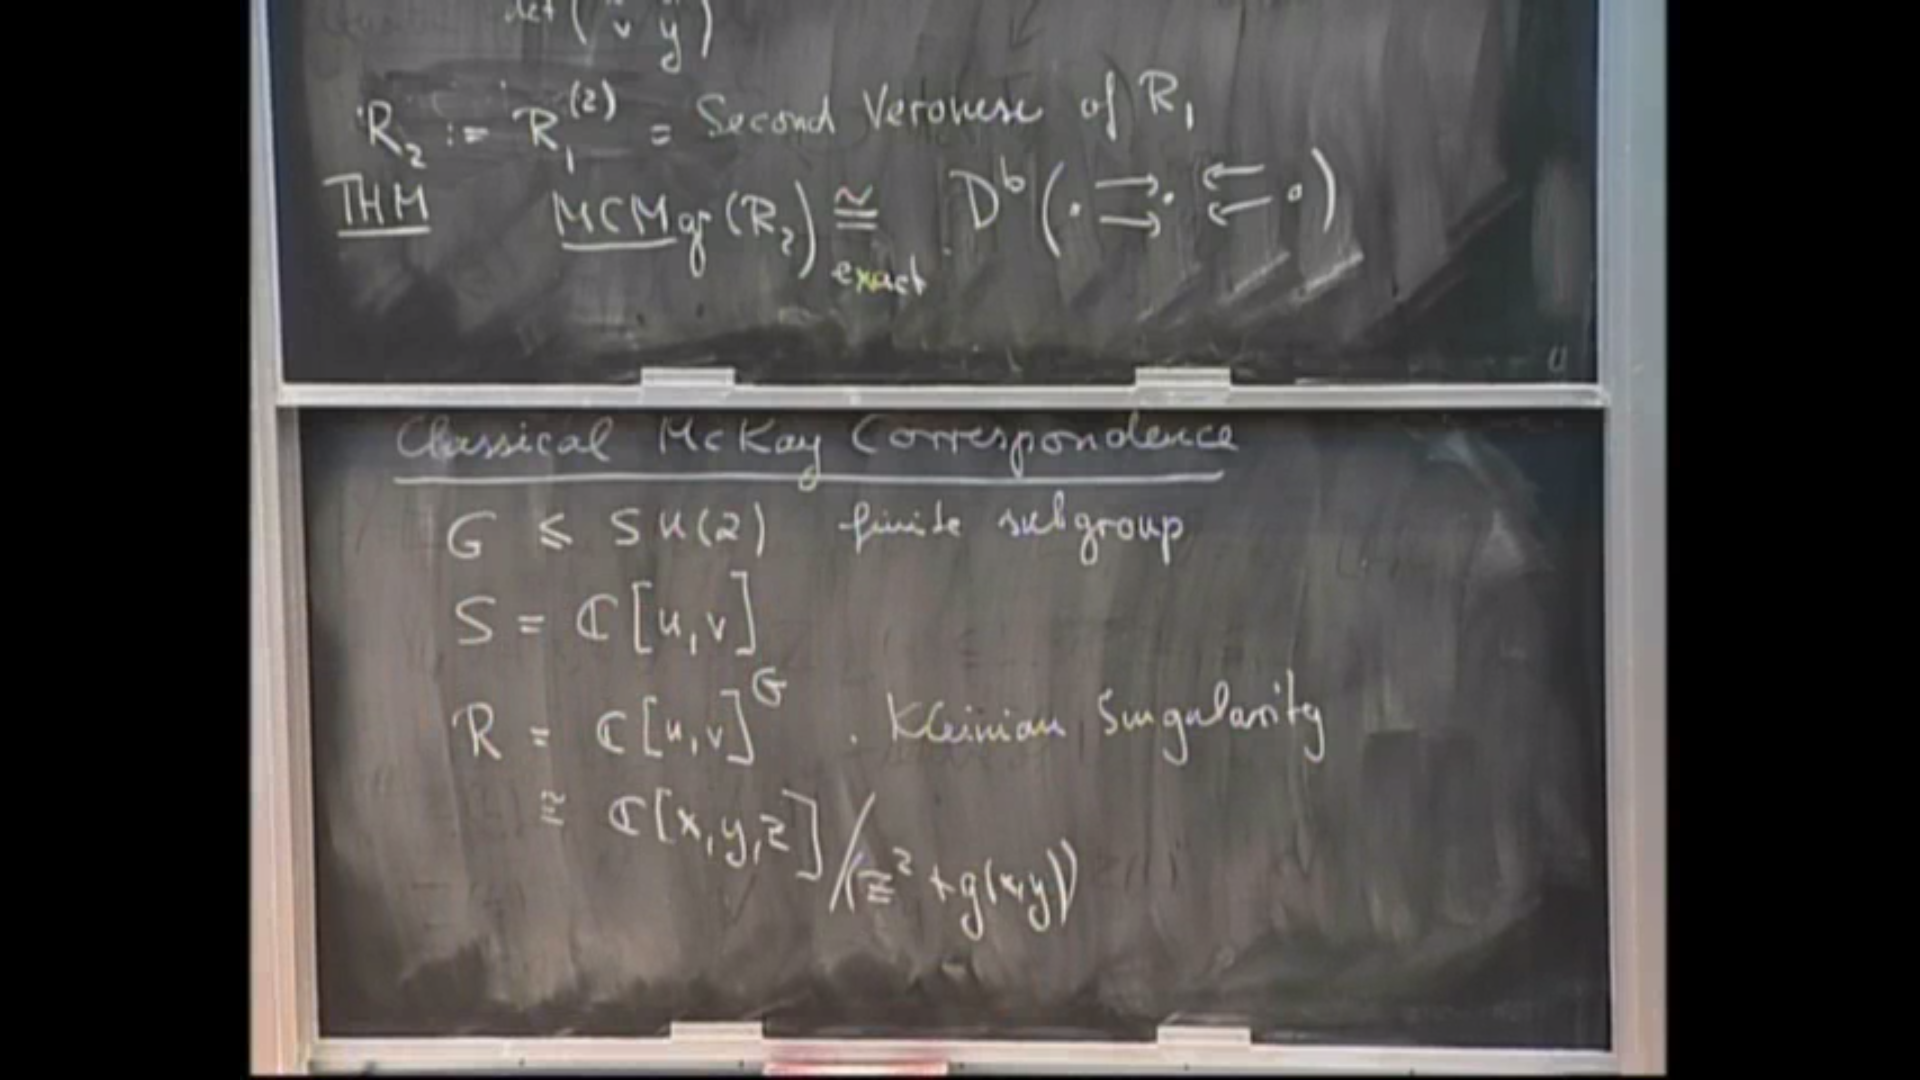 det ( v y )
R₂ := R₁⁽²⁾ = Second Veronese of R₁
THM MCMgr(R₂) ≅ Dᵇ( · ⇉ · ⇇ · )
exact
Classical McKay Correspondence
G ≤ SU(2) finite subgroup
S = ℂ[u,v]
R = ℂ[u,v]ᴳ . Kleinian Singularity
≅ ℂ[x,y,z]/(z² + g(x,y))